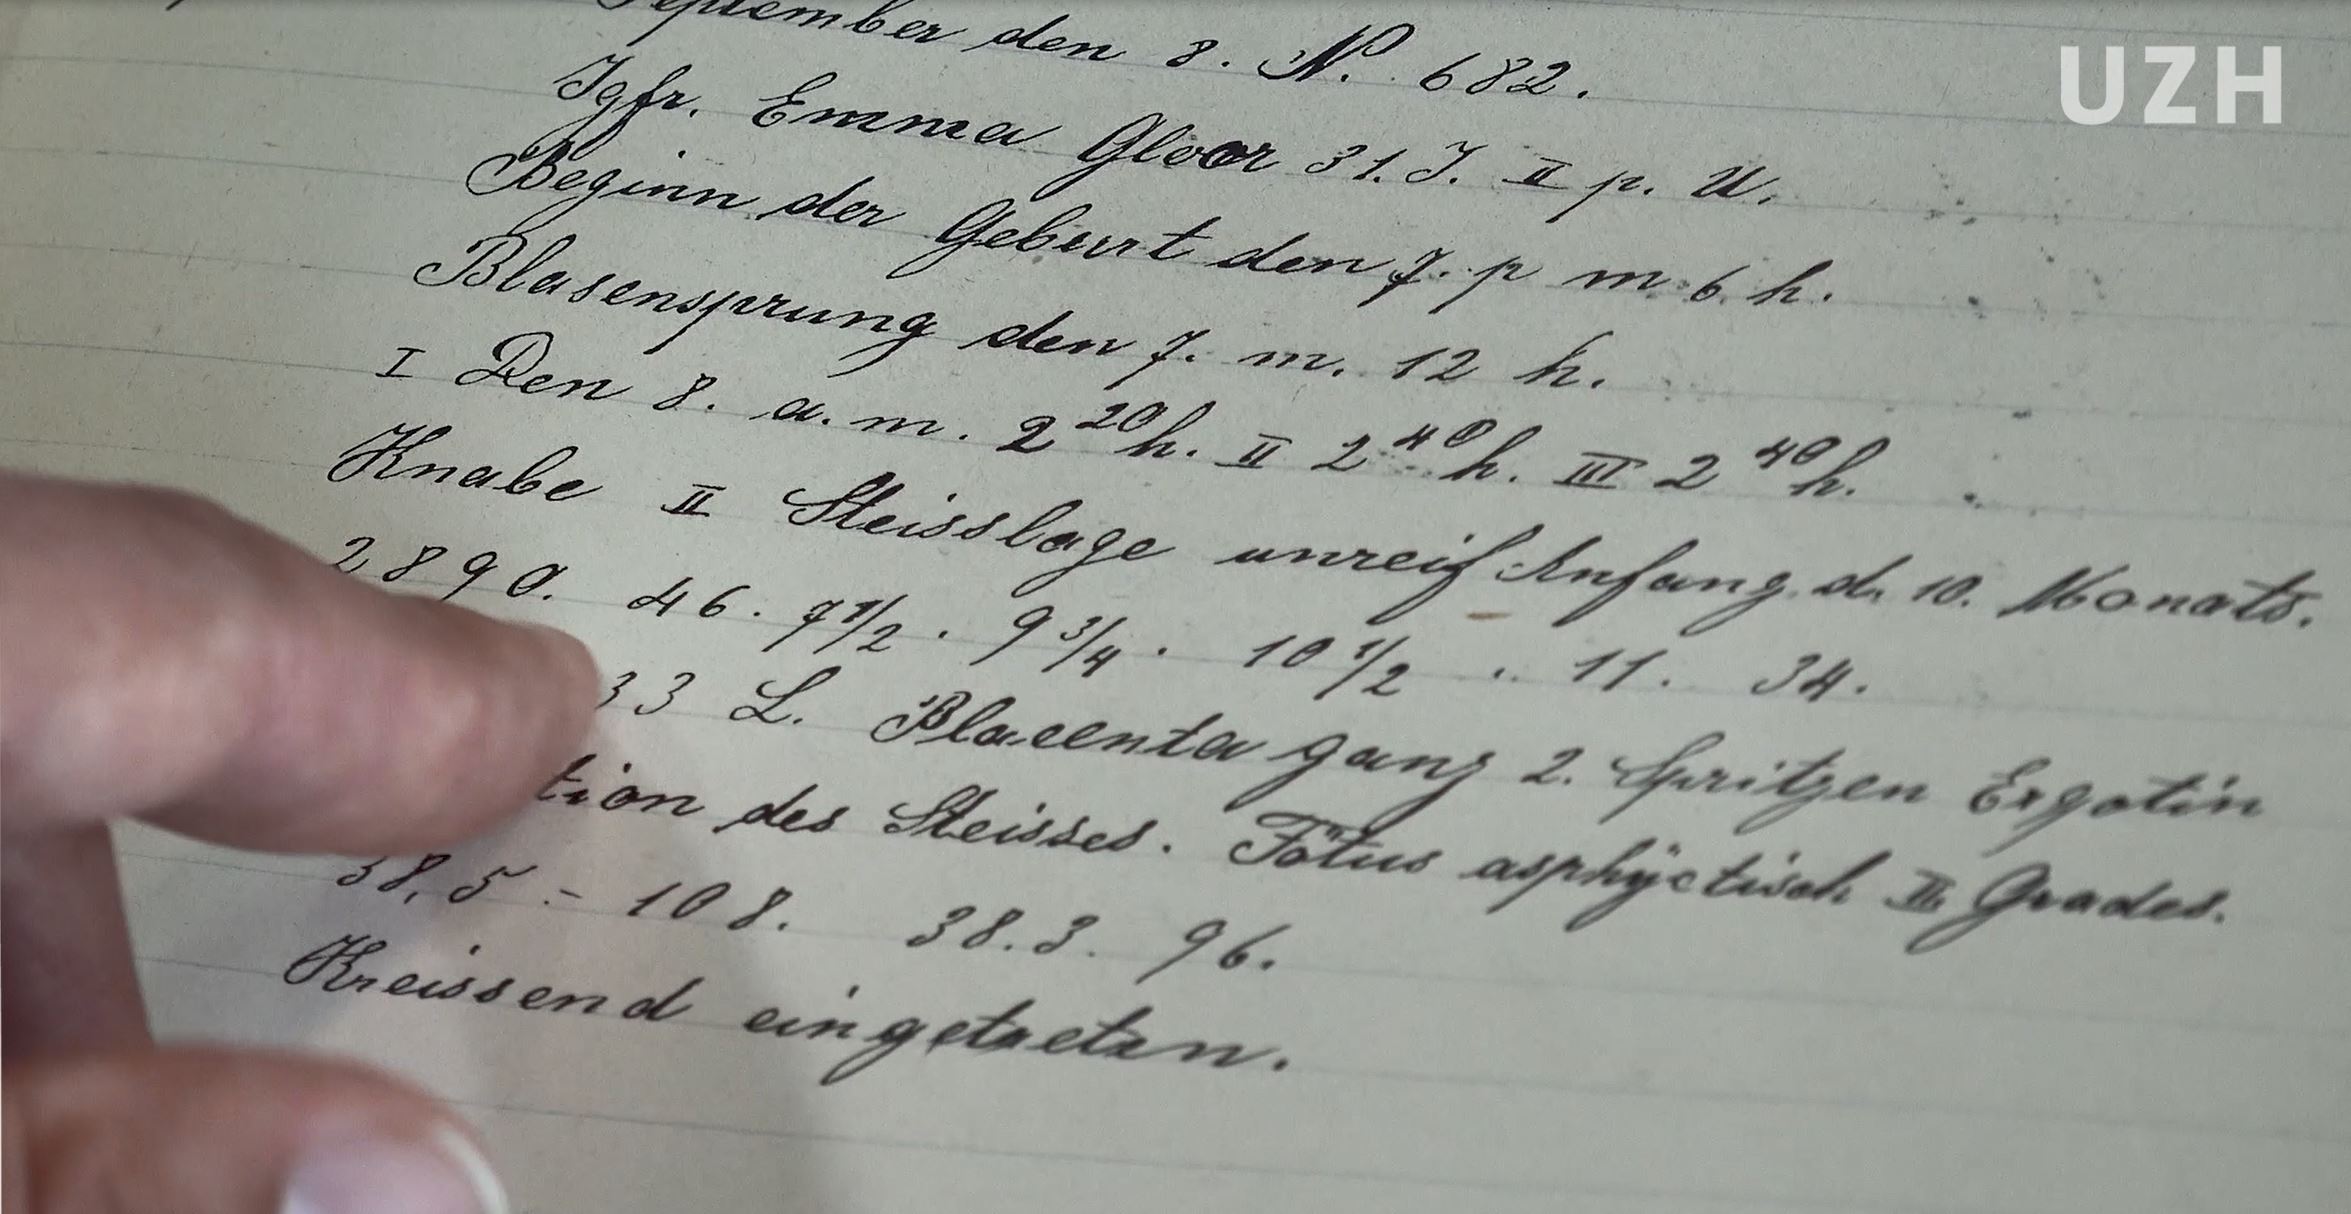 September den 8. N. 682.
UZH
Jgfr. Emma Gloor 31. J. II p. U.
Beginn der Geburt den 7. p m 6 h.
Blasensprung den 7. m. 12 h.
I Den 8. a. m. 2 20 h. II 2 40 h. III 2 40 h.
Knabe II Steisslage unreif Anfang d. 10. Monats.
2890. 46. 7 1/2 . 9 3/4 . 10 1/2 . 11. 34.
33 L. Placenta ganz 2. Spritzen Ergotin
tion des Steisses. Fötus asphyctisch II. Grades.
38,5 - 108. 38.3. 96.
Kreissend eingetreten.